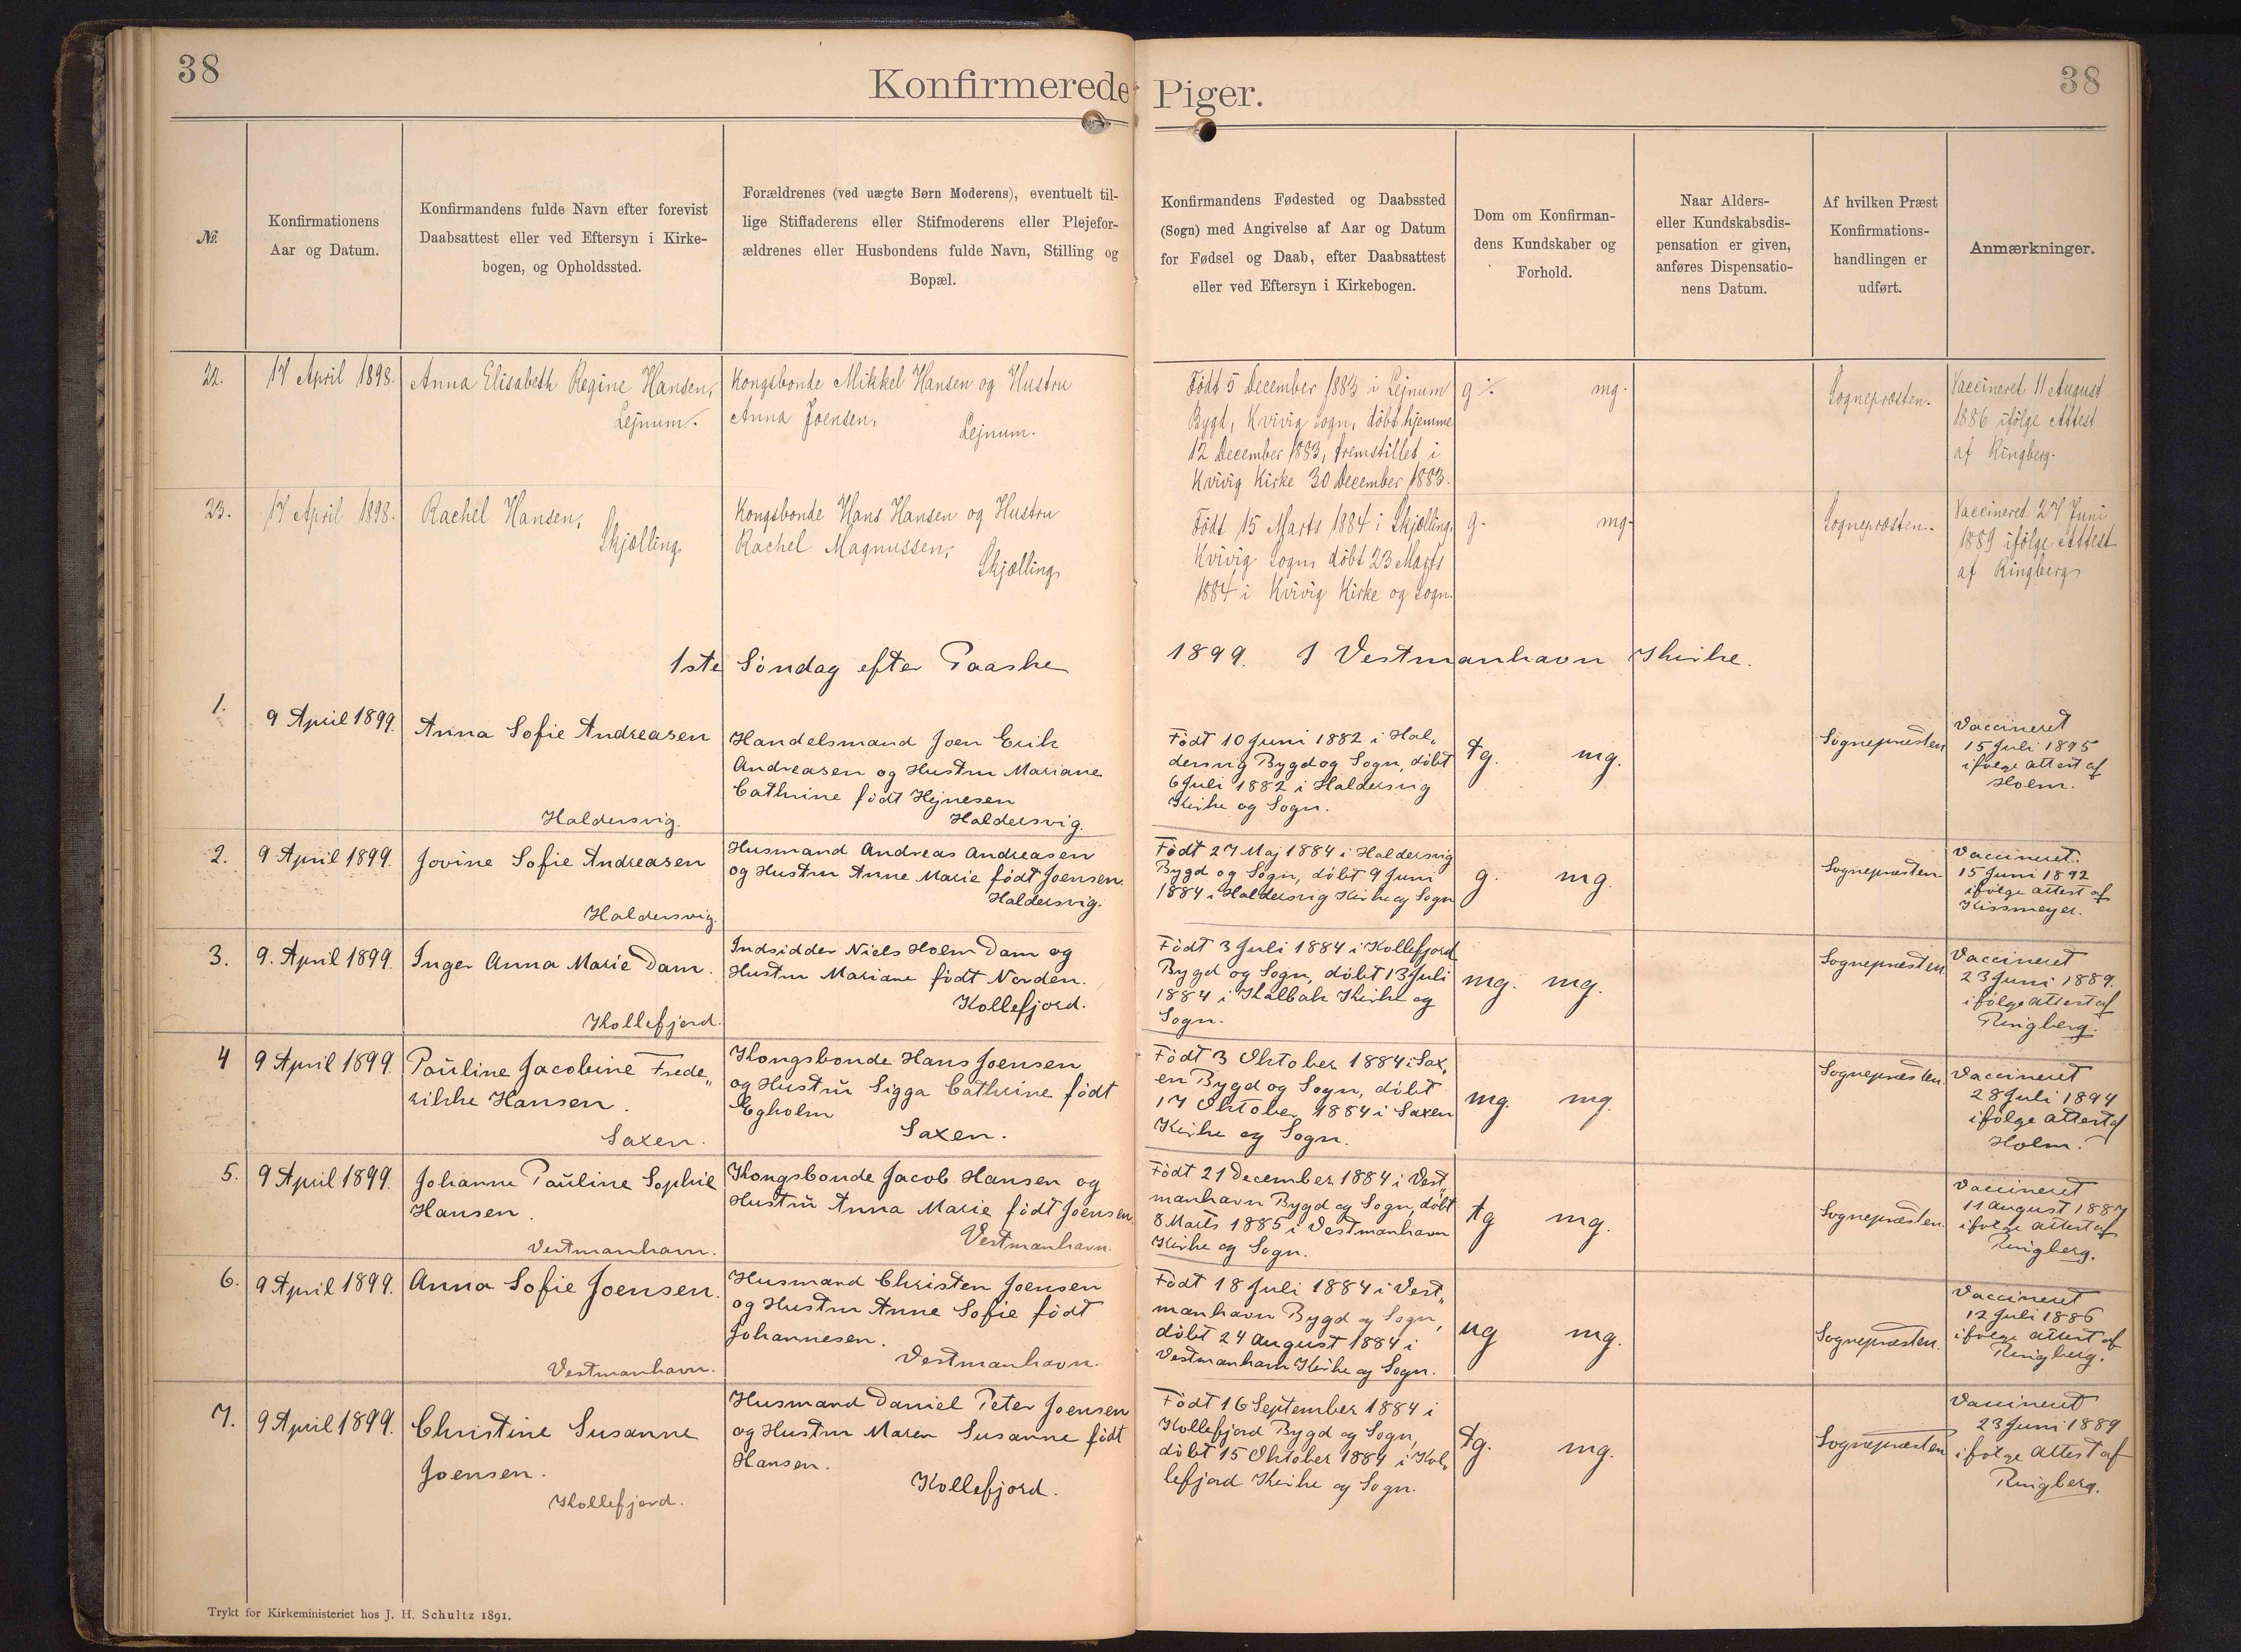 38
Konfirmerede Piger.
38
№.
Konfirmationens
Aar og Datum.
Konfirmandens fulde Navn efter forevist
Daabsattest eller ved Eftersyn i Kirke-
bogen, og Opholdssted.
Forældrenes (ved uægte Børn Moderens), eventuelt til-
lige Stiffaderens eller Stifmoderens eller Plejefor-
ældrenes eller Husbondens fulde Navn, Stilling og
Bopæl.
Konfirmandens Fødested og Daabssted
(Sogn) med Angivelse af Aar og Datum
for Fødsel og Daab, efter Daabsattest
eller ved Eftersyn i Kirkebogen.
Dom om Konfirman-
dens Kundskaber og
Forhold.
Naar Alders-
eller Kundskabsdis-
pensation er given,
anføres Dispensatio-
nens Datum.
Af hvilken Præst
Konfirmations-
handlingen er
udført.
Anmærkninger.
22.
17 April 1898.
Anna Elisabeth Regine Hansen,
Lejnum.
Kongsbonde Mikkel Hansen og Hustru
Anna Joensen,
Lejnum.
Født 5 December 1883 i Lejnum
Bygd, Kvivig Sogn, døbt hjemme
12 December 1883, fremstillet i
Kvivig Kirke 30 December 1883.
g ÷. mg.
Sognepræsten.
Vaccineret 11 August
1886 ifølge Attest
af Ringberg.
23.
17 April 1898.
Rachel Hansen,
Skjælling
Kongsbonde Hans Hansen og Hustru
Rachel Magnussen,
Skjælling
Født 15 Marts 1884 i Skjælling,
Kvivig Sogn, døbt 23 Marts
1884 i Kvivig Kirke og Sogn.
g. mg.
Sognepræsten.
Vaccineret 27 Juni
1889 ifølge Attest
af Ringberg
1ste Søndag efter Paaske 1899. I Vestmanhavn Kirke.
1.
9 April 1899.
Anna Sofie Andreasen
Haldersvig.
Handelsmand Joen Erik
Andreasen og Hustru Mariane
Cathrine født Hejnesen
Haldersvig.
Født 10 Juni 1882 i Hal„
dersvig Bygd og Sogn, døbt
6 Juli 1882 i Haldersvig
Kirke og Sogn.
tg. mg.
Sognepræsten
Vaccineret
15 Juli 1895
ifølge attest af
Holm.
2.
9 April 1899.
Jovine Sofie Andreasen
Haldersvig.
Husmand Andreas Andreasen
og Hustru Anne Marie født Joensen.
Haldersvig.
Født 27 Maj 1884 i Haldersvig
Bygd og Sogn, døbt 9 Juni
1884 i Haldersvig Kirke og Sogn
g. mg.
Sognepræsten
Vaccineret.
15 Juni 1892
ifølge attest af
Kissmeyer.
3.
9. April 1899.
Inger Anna Marie Dam.
Kollefjord.
Indsidder Niels Holm Dam og
Hustru Mariane født Norden.
Kollefjord.
Født 3 Juli 1884 i Kollefjord
Bygd og Sogn, døbt 13 Juli
1884 i Kalbak Kirke og
Sogn.
mg. mg.
Sognepræsten.
Vaccineret
23 Juni 1889.
ifølge attest af
Ringberg.
4
9 April 1899.
Pauline Jacobine Frede„
rikke Hansen.
Saxen.
Kongsbonde Hans Joensen
og Hustrŭ Sigga Cathrine født
Egholm
Saxen.
Født 3 Oktober 1884 i Sax„
en Bygd og Sogn, døbt
17 Oktober 1884 i Saxen
Kirke og Sogn.
mg. mg.
Sognepræsten.
Vaccineret
28 Juli 1894
ifølge attest af
Holm.
5.
9 April 1899.
Johanne Paŭline Sophie
Hansen.
Vestmanhavn.
Kongsbonde Jacob Hansen og
Hustrŭ Anna Marie født Joensen.
Vestmanhavn.
Født 21 December 1884 i Vest„
manhavn Bygd og Sogn, døbt
8 Marts 1885 i Vestmanhavn
Kirke og Sogn.
tg mg.
Sognepræsten.
Vaccineret
11 August 1887
ifølge attest af
Ringberg.
6.
9 April 1899.
Anna Sofie Joensen.
Vestmanhavn.
Husmand Christen Joensen
og Hustru Anne Sofie født
Johannesen.
Vestmanhavn.
Født 18 Juli 1884 i Vest„
manhavn Bygd og Sogn,
døbt 24 August 1884 i
Vestmanhavn Kirke og Sogn.
ug mg.
Sognepræsten.
Vaccineret
12 Juli 1886
ifølge attest af
Ringberg.
7.
9 April 1899.
Christine Susanne
Joensen.
Kollefjord.
Husmand Daniel Peter Joensen
og Hustru Maren Susanne født
Hansen.
Kollefjord.
Født 16 September 1884 i
Kollefjord Bygd og Sogn,
døbt 15 Oktober 1884 i Kol„
lefjord Kirke og Sogn.
tg. mg.
Sognepræsten
Vaccineret
23 Juni 1889
ifølge Attest af
Ringberg.
Trykt for Kirkeministeriet hos J. H. Schultz 1891.